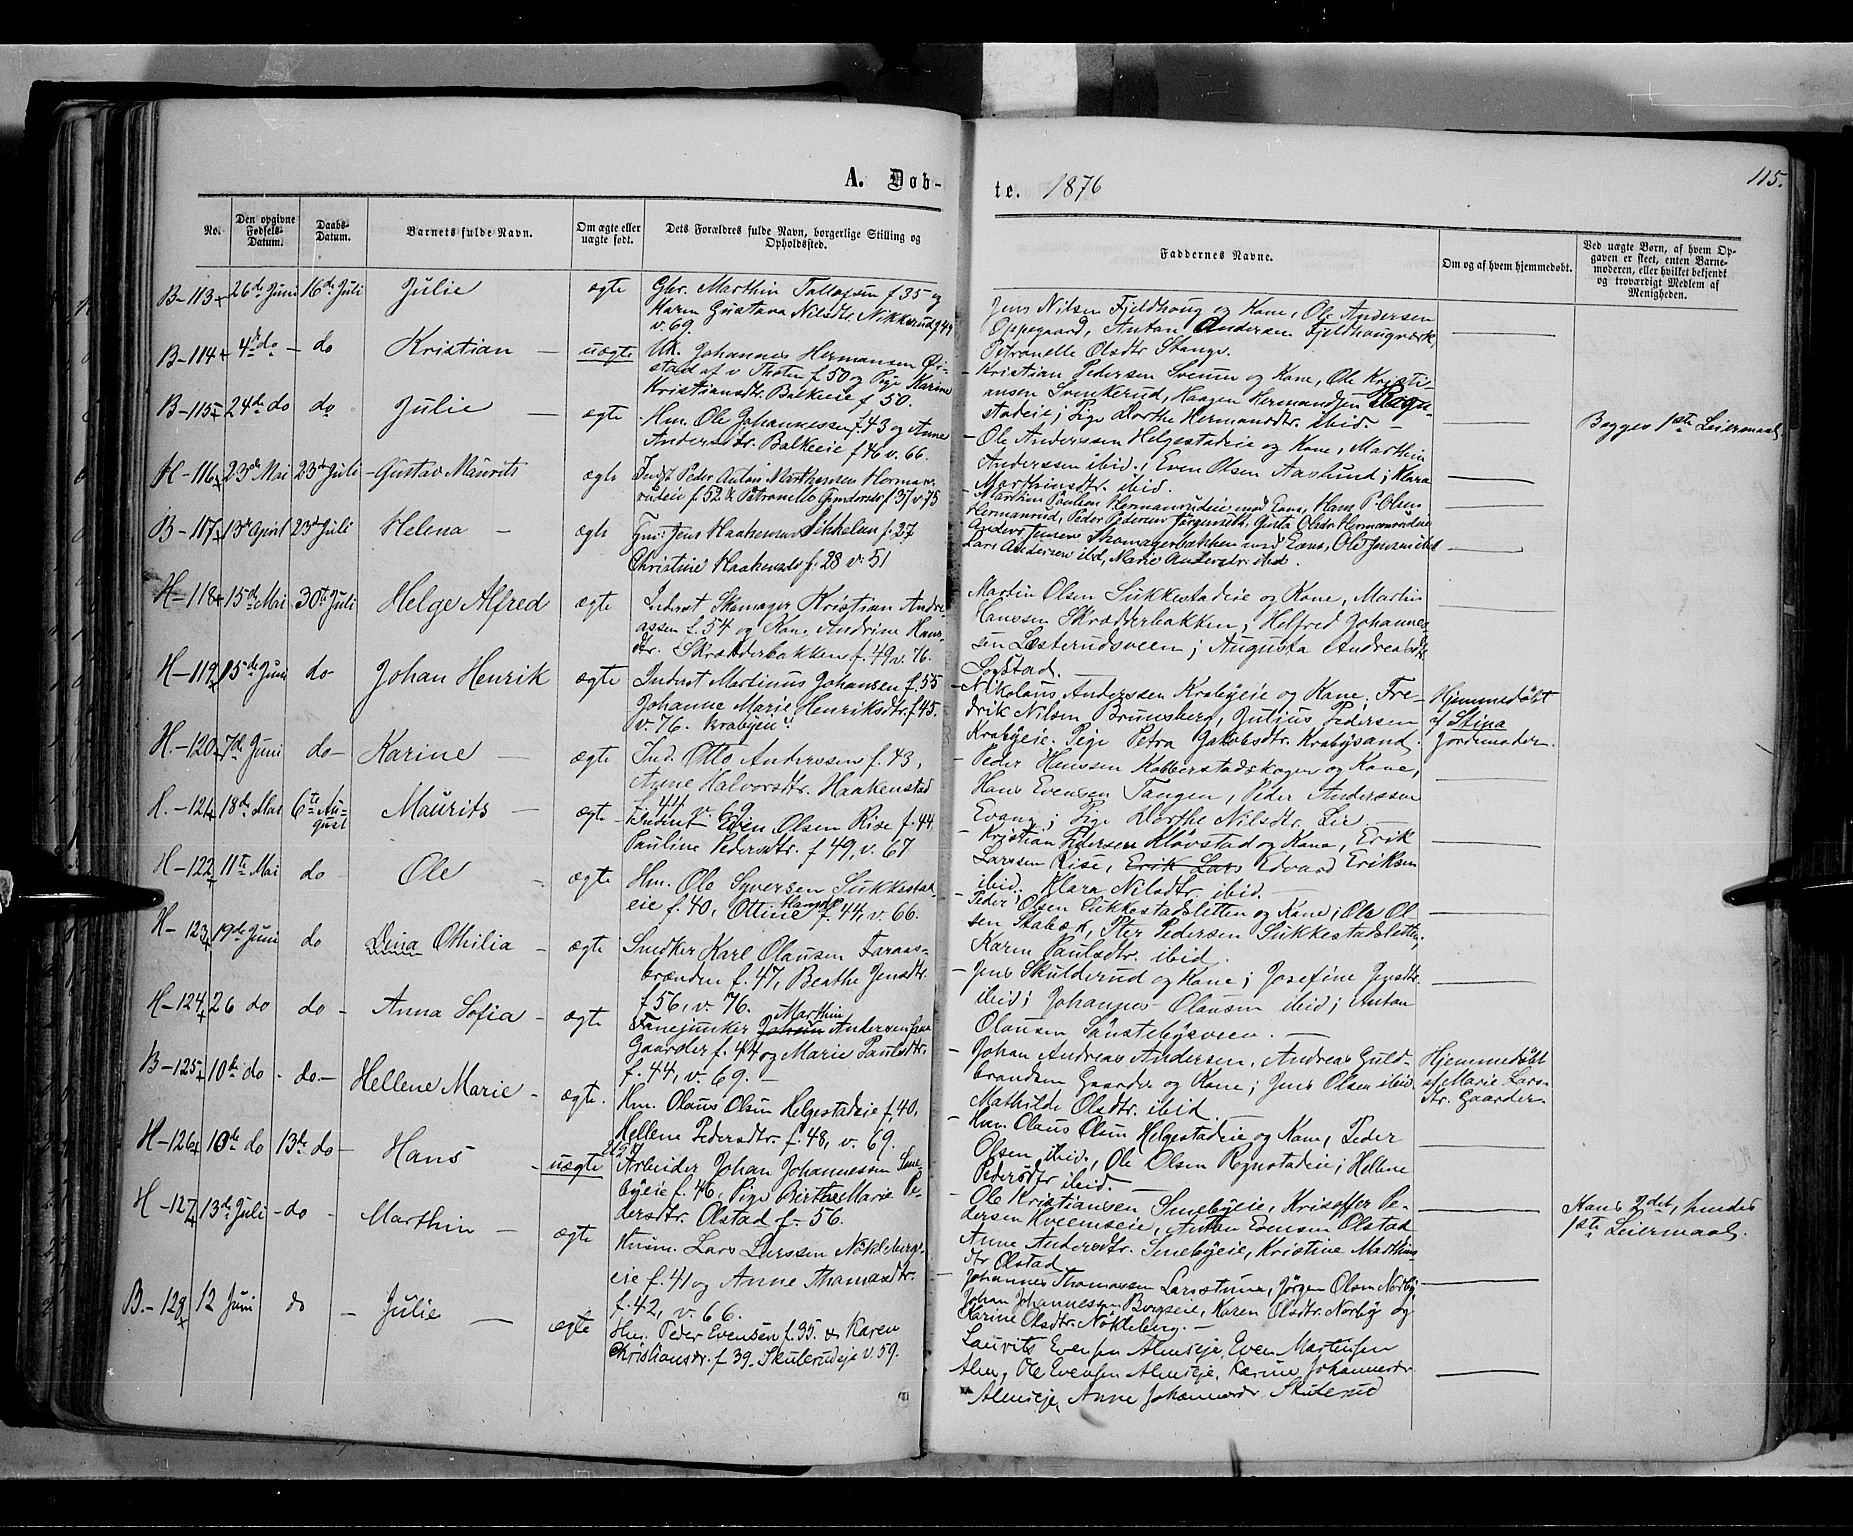 A. Døb-
te. 1876
115.
No.
Den opgivne Fødsels-Datum.
Daabs-Datum.
Barnets fulde Navn.
Om ægte eller uægte født.
Dets Forældres fulde Navn, borgerlige Stilling og Opholdssted.
Faddernes Navne.
Om og af hvem hjemmedøbt.
Ved uægte Børn, af hvem Opgaven er skeet, enten Barnemoderen, eller hvilket bekjendt og troværdigt Medlem af Menigheden.
B-113 26de Juni 16de Juli Julie ægte Gbr. Marthin Tollefsen f. 35 og
Karen Gustava Nilsdtr. Nikkerud f 49
v. 69.
Jens Nilsen Fjeldhoug og Kone, Ole Andersen
Oppegaard, Anton Andersen Fjeldhougværk,
Petronelle Olsdtr Stange.
B-114 4de do - do Kristian - uægte Uk. Johannes Hermansen Øi-
stad af v Thoten f. 50 og Pige Karine
Kristiansdtr. Balkeeie f 50.
Kristian Pedersen Sveum og Kone, Ole Kristi-
ansen Svenkerud, Haagen Hermandsen Rogn-
stadeie; Pige Dorthe Hermansdtr. ibid. -
Begges 1ste Leiermaal.
B-115 24de do do Julie - ægte Hm. Ole Johannessen f. 43 og Anne
Andersdtr. Balkeeie f 46 v. 66.
- Ole Anderssen Helgestadeie og Kone, Marthin
Anderssen ibid., Even Olsen Aaslund; Klara
Marthinsdtr. ibid.
H-116 23de Mai 23de Juli Gustav Maurits ægte Indst Peder Anton Marthinsen Herman-
rudeie f. 52 & Petronelle Gundersdr f. 37 v 75
Marthin Paulsen Hermanrudeie med Kone, Hans P. Olsen
Hermanrud, Peder Pedersen, Gusta Olsdr Hermanrudeie
B-117 13de April 23de Juli Helena - ægte Gm: Jens Haakensen Sikkelen f. 27
Christine Haakensdr f. 28 v. 51
Anders Jensen Skomagerbakken med Kone, Ole Jensen ibid
Lars Andersen ibid, Marie Andersdr ibid.
H-118 15de Mai 30te Juli Helge Alfred ægte Inderst Skomager Kristian Andre-
assen f. 54 og Kone Andrine Hans-
dtr. Skrædderbakken f. 49 v. 76.
Martin Olsen Sukkestadeie og Kone, Martin
Hanssen Skrædderbakken, Helfred Johannes-
sen Læsterudsveen; Augusta Andreasdtr
Sogstad.
H-119 15de Juni do Johan Henrik ægte Inderst Martinus Johansen f. 55
Johanne Marie Henriksdtr. f. 45.
v. 76. Krabyeie.
- Nikolaus Anderssen Krabyeie og Kone; Fre-
drik Nilsen Brunsberg, Julius Pedersen
Krabyeie. Pige Petra Jakobsdtr. Krabysand.
Hjemmedøbt
af Stina
Jordemoder.
H.-120 7de Juni do - Karine - ægte Ind. Otto Anderssen f. 43,
Anne Halvorsdtr. Haakenstad
f 44 v. 69
- Peder Hanssen Kobberstadskogen og Kone,
Hans Evensen Tangen, Peder Anderssen
Evang; Pige Dorthe Nilsdtr. Lie. -
H.-121 18de Mai 6te August Maurits - ægte - Inderst Even Olsen Rise f. 44,
Pauline Pedersdtr. f 49, v. 67
- Kristian Pedersen Kløvstad og Kone, Erik
Larssen Rise, Erik Lars Edvard Eriksen
ibid. Klara Nilsdtr ibid. -
H-122 11te Mai do - Ole - ægte Hm. Ole Syversen Sukkestad-
eie f. 40, Ottine Hansdtr f. 44, v. 66.
- Peder Olsen Sukkestadsletten og Kone, Ole Ol-
sen Skabæk, Peter Pedersen Sukkestadsletten,
Karen Paulsdtr. ibid.
H-123 19de Juni do Dina Othilia - ægte Snedker Karl Olausen Faraas-
brænden f. 47, Beathe Jensdtr.
f 56, v. 76.
- Jens Skulderud og Kone; Josefine Jensdtr.
ibid; Johannes Olausen ibid; Anton
Olausen Sønstebysveen. -
H-124 26 do do - Anna Sofia - ægte Fanejunker Johan Marthin Andersen
Gaarder f. 44 og Marie Paulsdtr.
f. 44, v. 69. -
- Johan Andreas Andersen, Andreas Guld-
brandsen Gaarder og Kone; Jens Olsen ibid
Mathilde Olsdtr. ibid.
Hjemmedøbt
af Marie Lars-
dtr. Gaarder.
B-125 10de do - do. - Hellene Marie - ægte. Hm. Olaus Olsen Helgestadeie f. 40,
Hellene Pedersdtr. f. 48, v. 69.
- Hm. Olaus Olsen Helgestadeie og Kone, Peder
Olsen ibid., Ole Olsen Rognstadeie; Hellene
Pedersdtr ibid.
H-126 10de do 13de do - Hans - uægte Arbeider Johan Johannessen Sme-
byeie f. 46, Pige Birthe Marie Pe-
dersdtr. Olstad f. 56.
- Ole Kristiansen Smebyeie, Kristoffer Pe-
dersen Kveemseie, Anton Evensen Olstad
Anne Andersdtr. Smebyeie, Kristine Marthins-
dtr Olstad.
Hans 2det, hendes
1ste Leiermaal.
H-127 13de Juli - do - Marthin - ægte Husm. Lars Larssen Nøkleberg-
eie f. 41 og Anne Thomasdtr.
f. 42, v. 66.
- Johannes Thomassen Larsstuen, Jørgen Olsen Norby
Johan Johannessen Bergseie, Karen Olsdtr. Norby og
Karine Olsdtr. Nøkleberg. -
B.-128 12 Juni do - Julie - ægte Hm. Peder Evensen f. 35. & Karen
Christiansdr. f 39. Skuterudeje v. 59.
Laurits Evensen Almseje, Even Martensen
Alm, Ole Evensen Almseje, Karine Johannesdr
Almseje, Anne Johannesdr Skuterud